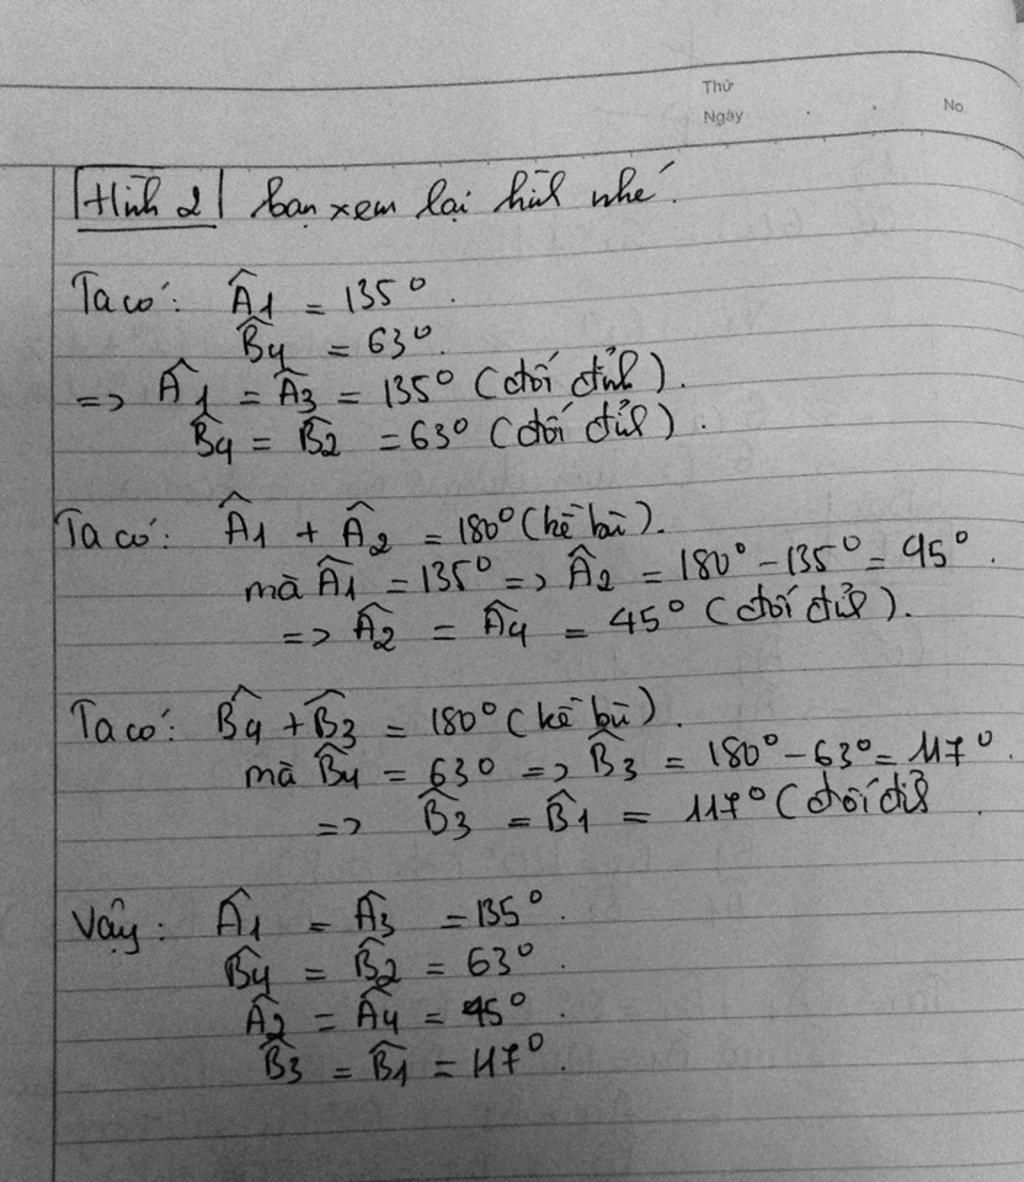 Thứ
Ngày . . No.
Hình 2 bạn xem lại hình nhé.
Ta có: Â1 = 135°.
B̂4 = 63°.
=> Â1 = Â3 = 135° (đối đỉnh).
B̂4 = B̂2 = 63° (đối đỉnh).
Ta có: Â1 + Â2 = 180° (kề bù).
mà Â1 = 135° => Â2 = 180° - 135° = 45°.
=> Â2 = Â4 = 45° (đối đỉnh).
Ta có: B̂4 + B̂3 = 180° (kề bù).
mà B̂4 = 63° => B̂3 = 180° - 63° = 117°
=> B̂3 = B̂1 = 117° (đối đỉnh .
Vậy: Â1 = Â3 = 135°.
B̂4 = B̂2 = 63°.
Â2 = Â4 = 45°.
B̂3 = B̂1 = 117°.